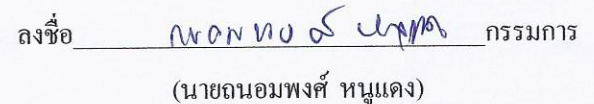 ลงชื่อ ถนอมพงศ์ หนูแดง กรรมการ
(นายถนอมพงศ์ หนูแดง)